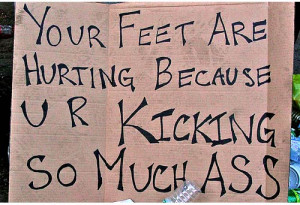 YOUR FEET ARE
HURTING BECAUSE
U R KICKING
SO MUCH ASS